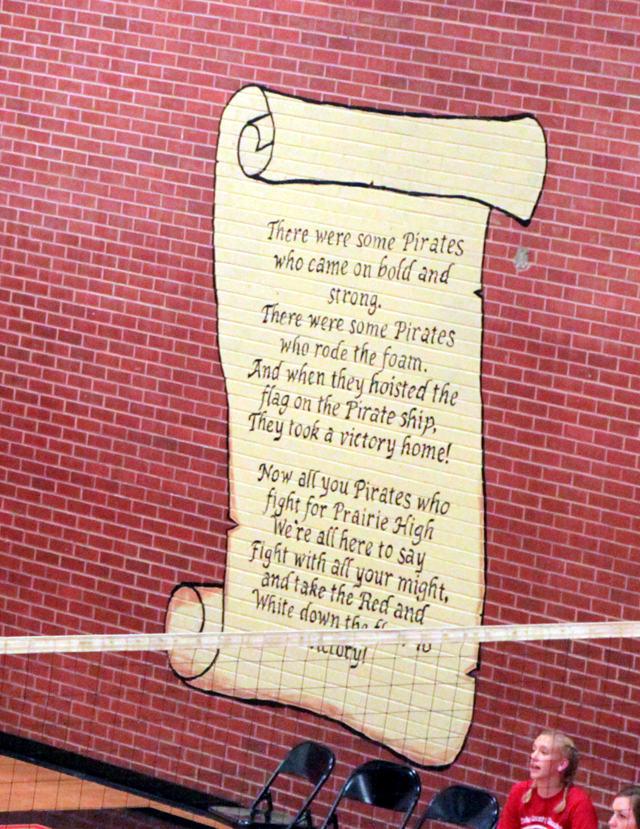 There were some Pirates
who came on bold and
strong.
There were some Pirates
who rode the foam.
And when they hoisted the
flag on the Pirate ship,
They took a victory home!
Now all you Pirates who
fight for Prairie High
We're all here to say
Fight with all your might,
and take the Red and
White down the